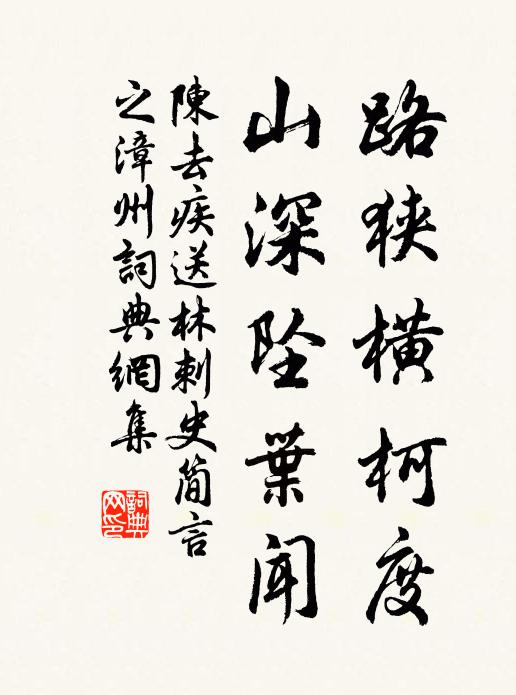 路狹橫柯度
山深墜葉聞
陳去疾送林刺史簡言
之漳州詞典網集
詞典
网印